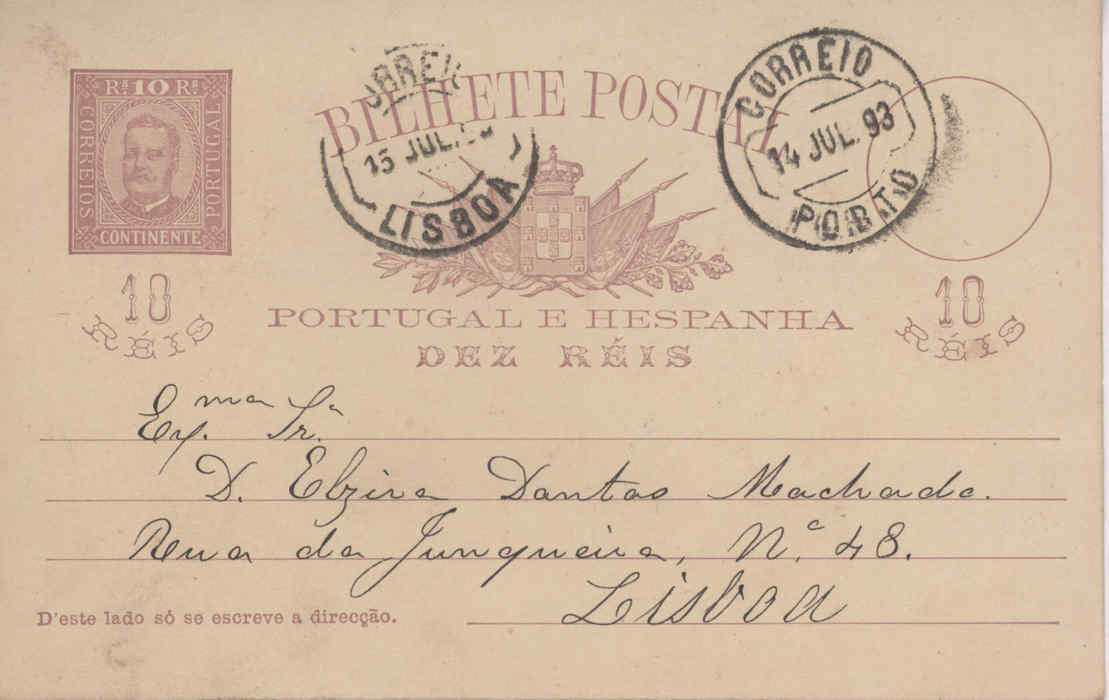 Rs 10 Rs
CORREIOS
PORTUGAL
CONTINENTE
BILHETE POSTAL
CORREIO
15 JUL.
LISBOA
CORREIO
14 JUL. 93
PORTO
10
RÉIS
10
RÉIS
PORTUGAL E HESPANHA
DEZ RÉIS
Exma Sra
D. Elzira Dantas Machado.
Rua da Junqueira, No 48.
Lisboa
D'este lado só se escreve a direcção.